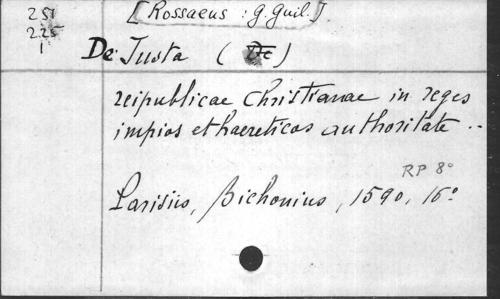 251 [Rossaeus : G Guil.]
225
1
De Justa (De)
reipublicae Christianae in reges
impios et haereticos authoritate ..
RP 8º
Parisiis, Bichonius, 1590, 16º